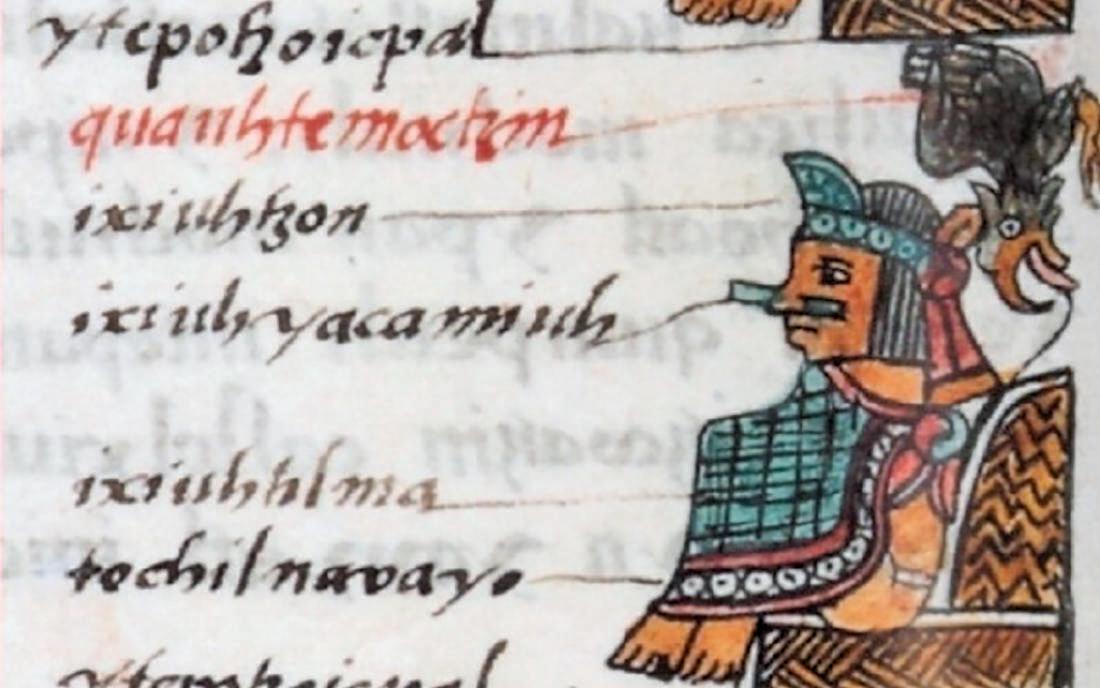 ytepotzoicpal
quauhtemoctzin
ixiuhtzon
ixiuhyacamiuh
ixiuhtilma
tochilnavayo